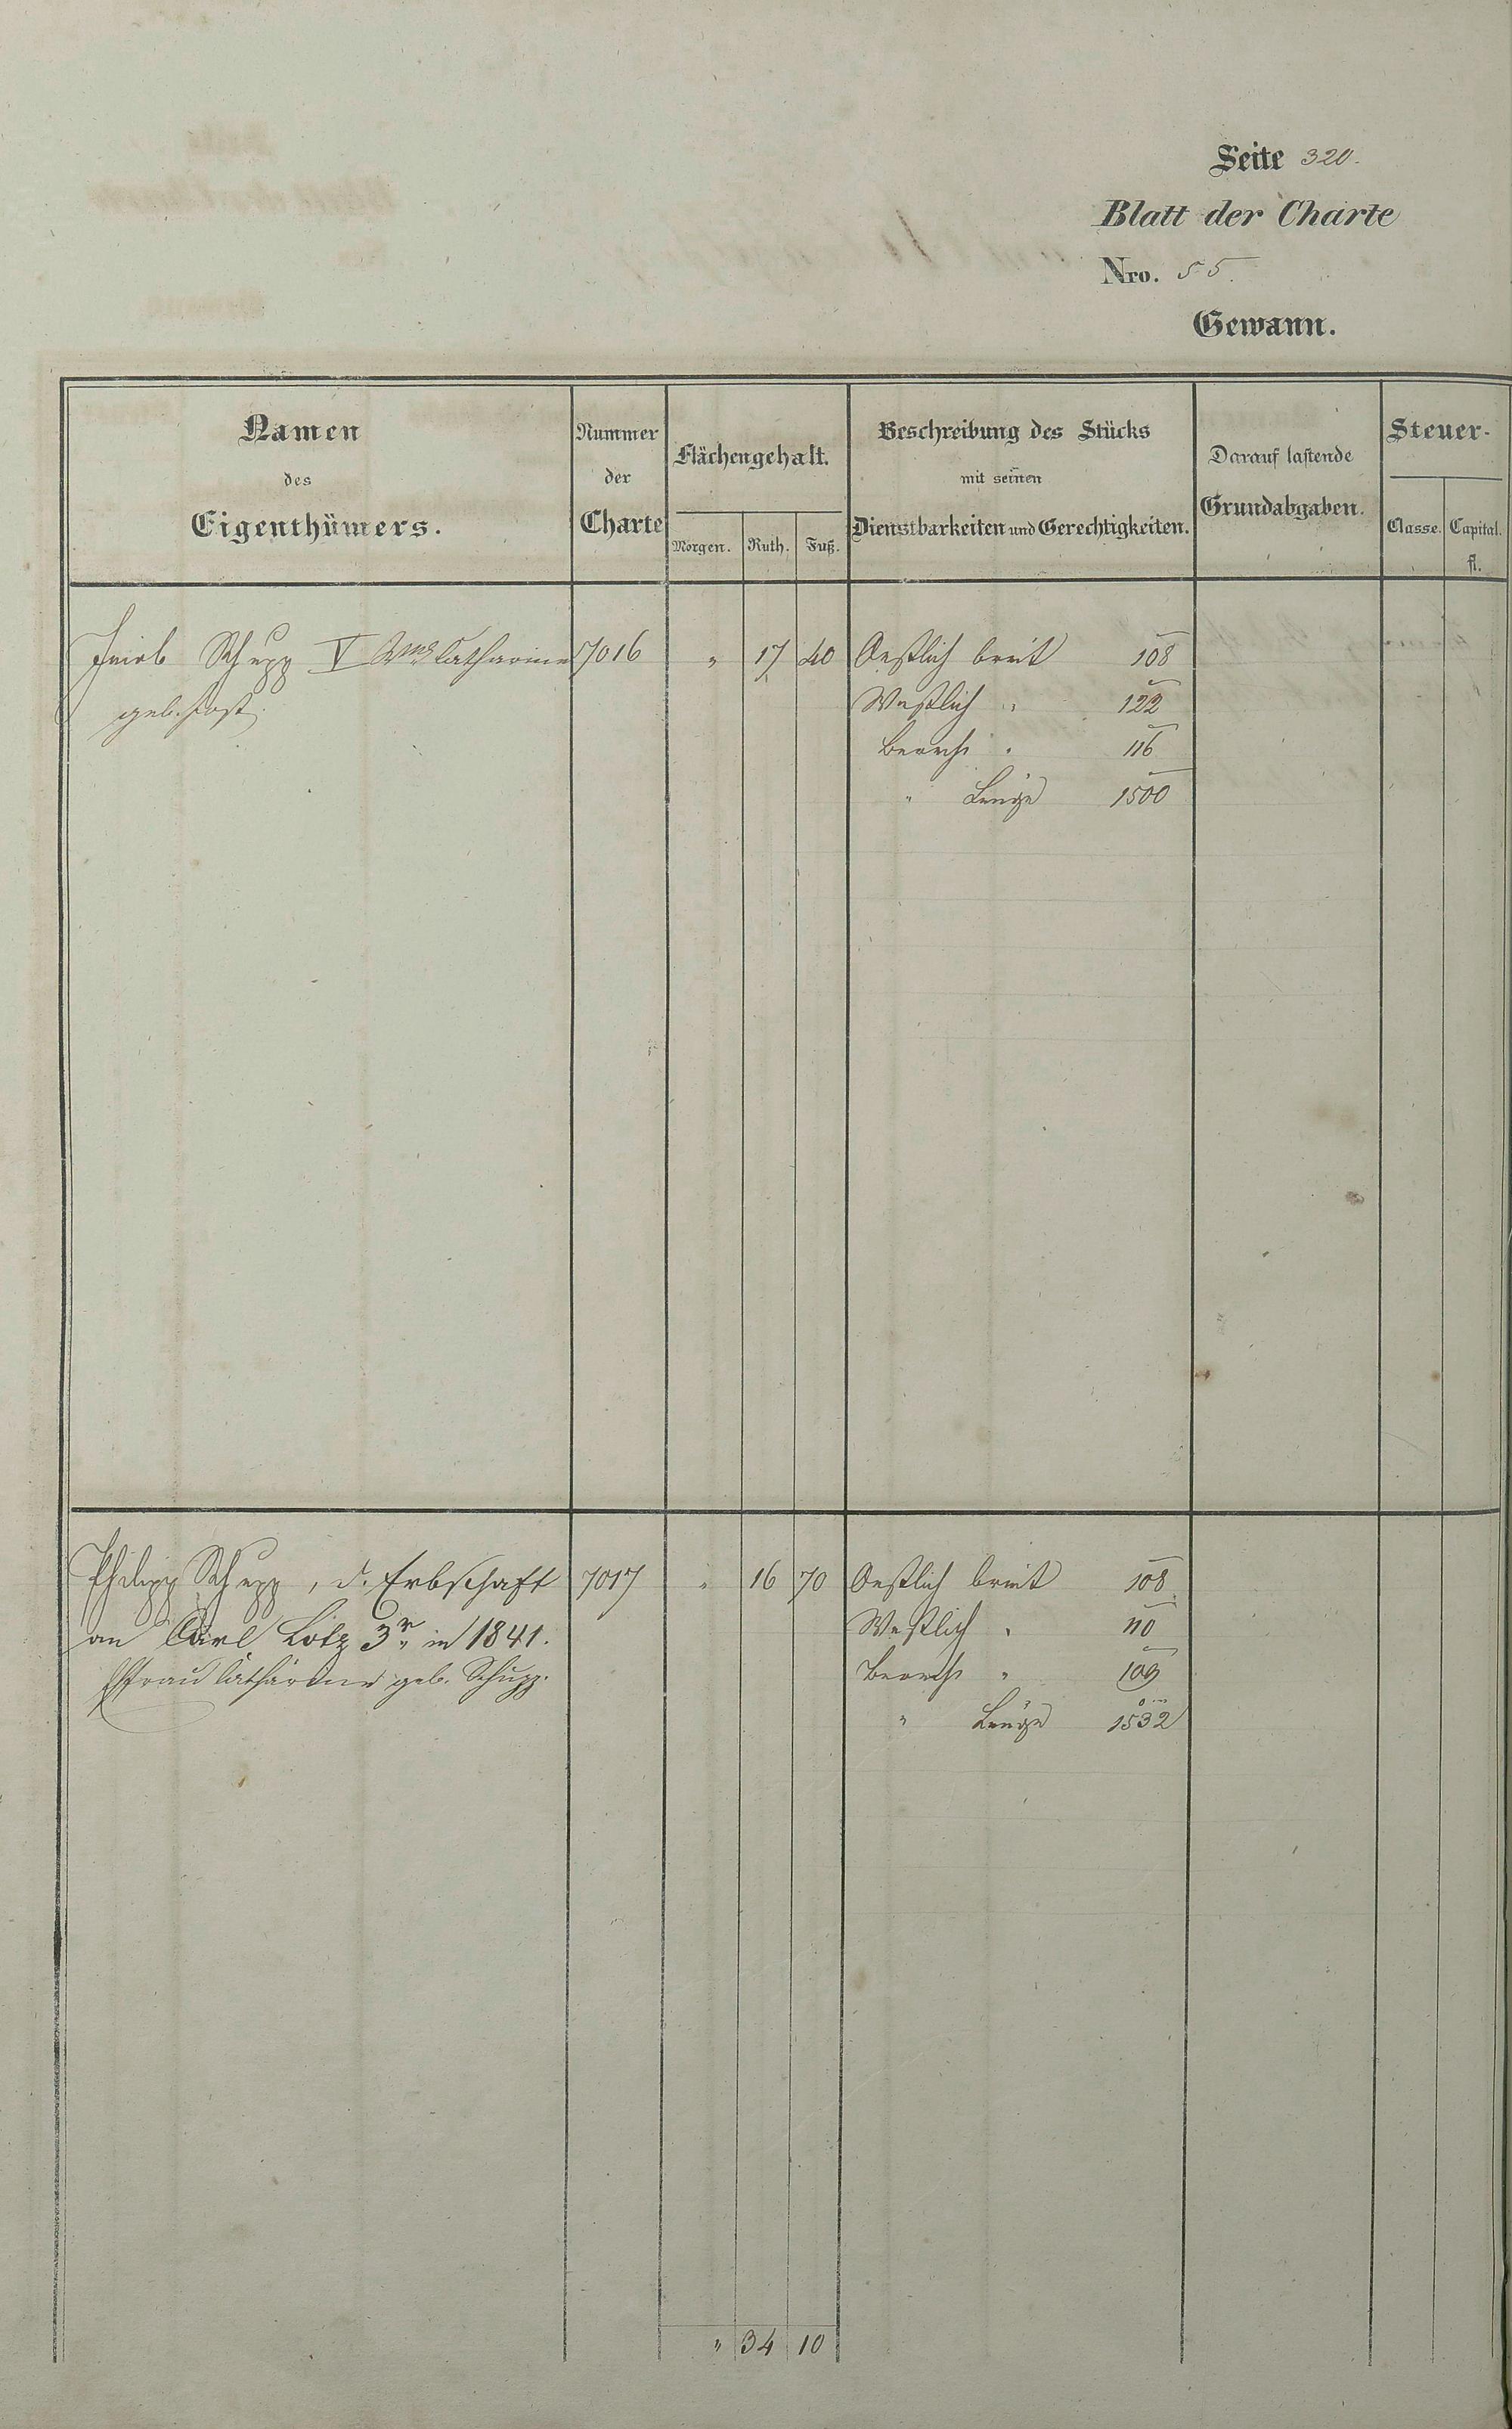 Seite 320.
Blatt der Charte
Nro. 55.
Gewann.
Namen
des
Eigenthümers.
Nummer
der
Charte
Flächengehalt.
Morgen. Ruth. Fuß.
Beschreibung des Stücks
mit seinen
Dienstbarkeiten und Gerechtigkeiten.
Darauf lastende
Grundabgaben.
Steuer-
Classe. Capital.
fl.
Jacob Schupp V Catharina 7016 " 17 40 Oestlich breit 108
geb. Westlich " 122
" 116
" Länge 1500
Philipp Schupp, d. Erbschaft 7017 " 16 70 Oestlich breit 108
an Carl Lotz 3r. in 1841. Westlich " 110
Ehfrau Catharina geb. Schupp. " 109
" Länge 1532
" 34 10